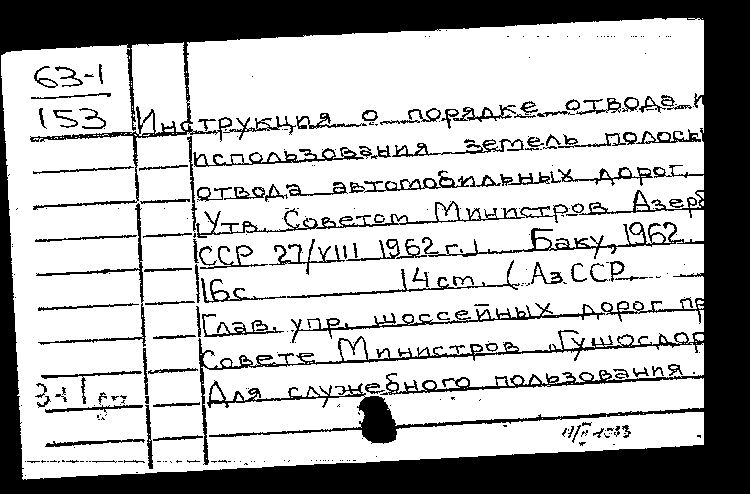 63-1
153 Инструкция о порядке отвода и
использования земель полосы
отвода автомобильных дорог.
[Утв. Советом Министров Азерб
ССР 27/VIII 1962 г.]. Баку, 1962.
16с. 14 см. (Аз.ССР.
Глав. упр. шоссейных дорог пр
Совете Министров „Гушосдор
Для служебного пользования.